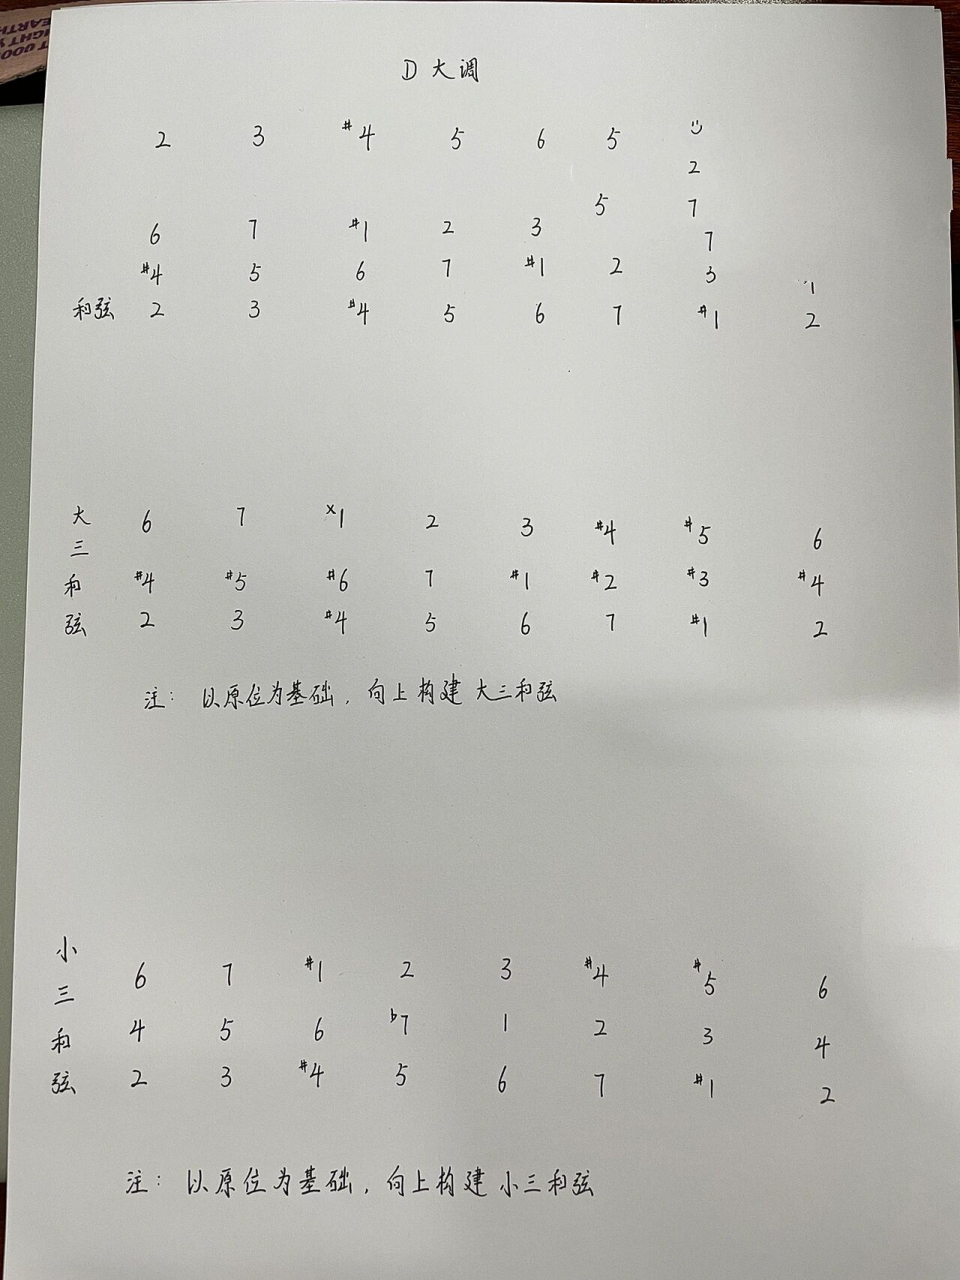 D 大调
2 3 #4 5 6 5
2
5 7
6 7 #1 2 3 7
#4 5 6 7 #1 2 3 1
和弦 2 3 #4 5 6 7 #1 2
大 6 7 x1 2 3 #4 #5 6
三
和 #4 #5 #6 7 #1 #2 #3 #4
弦 2 3 #4 5 6 7 #1 2
注: 以原位为基础, 向上构建 大三和弦
小
三 6 7 #1 2 3 #4 #5 6
和 4 5 6 b7 1 2 3 4
弦 2 3 #4 5 6 7 #1 2
注: 以原位为基础, 向上构建 小三和弦